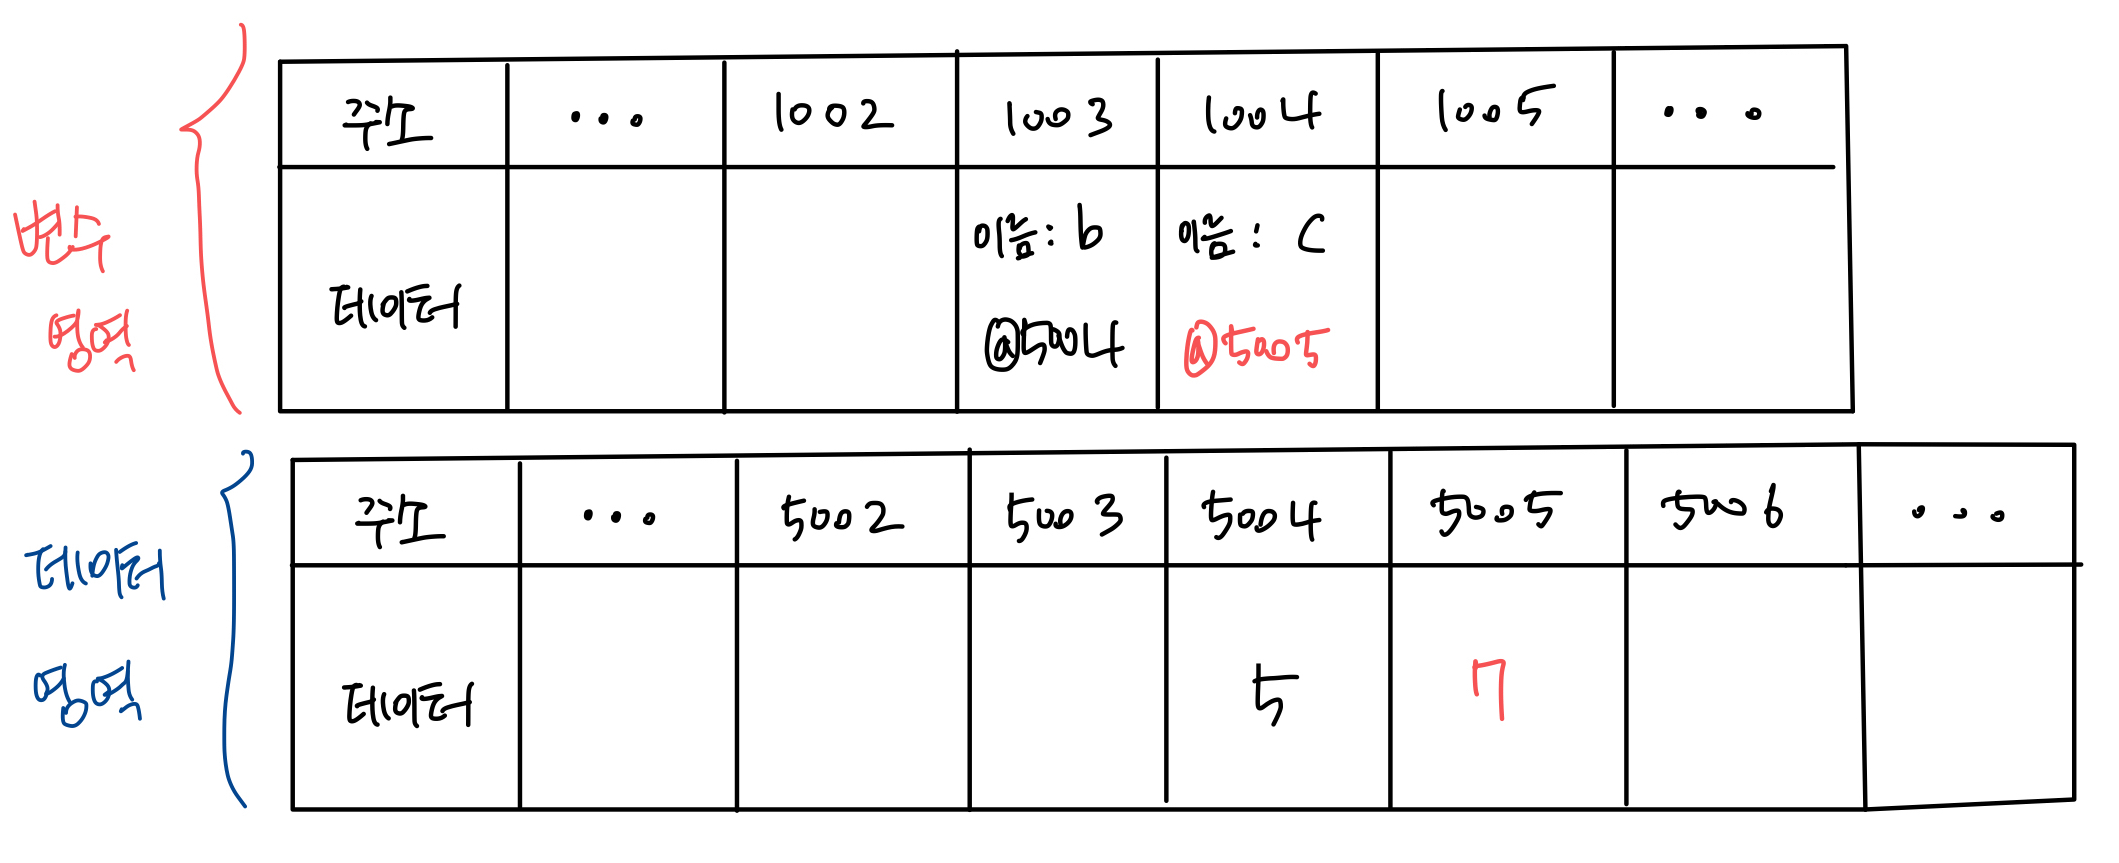 변수
영역
주소 ... 1002 1003 1004 1005 ...
데이터 이름: b 이름: c
@5004 @5005
데이터
영역
주소 ... 5002 5003 5004 5005 5006 ...
데이터 5 7